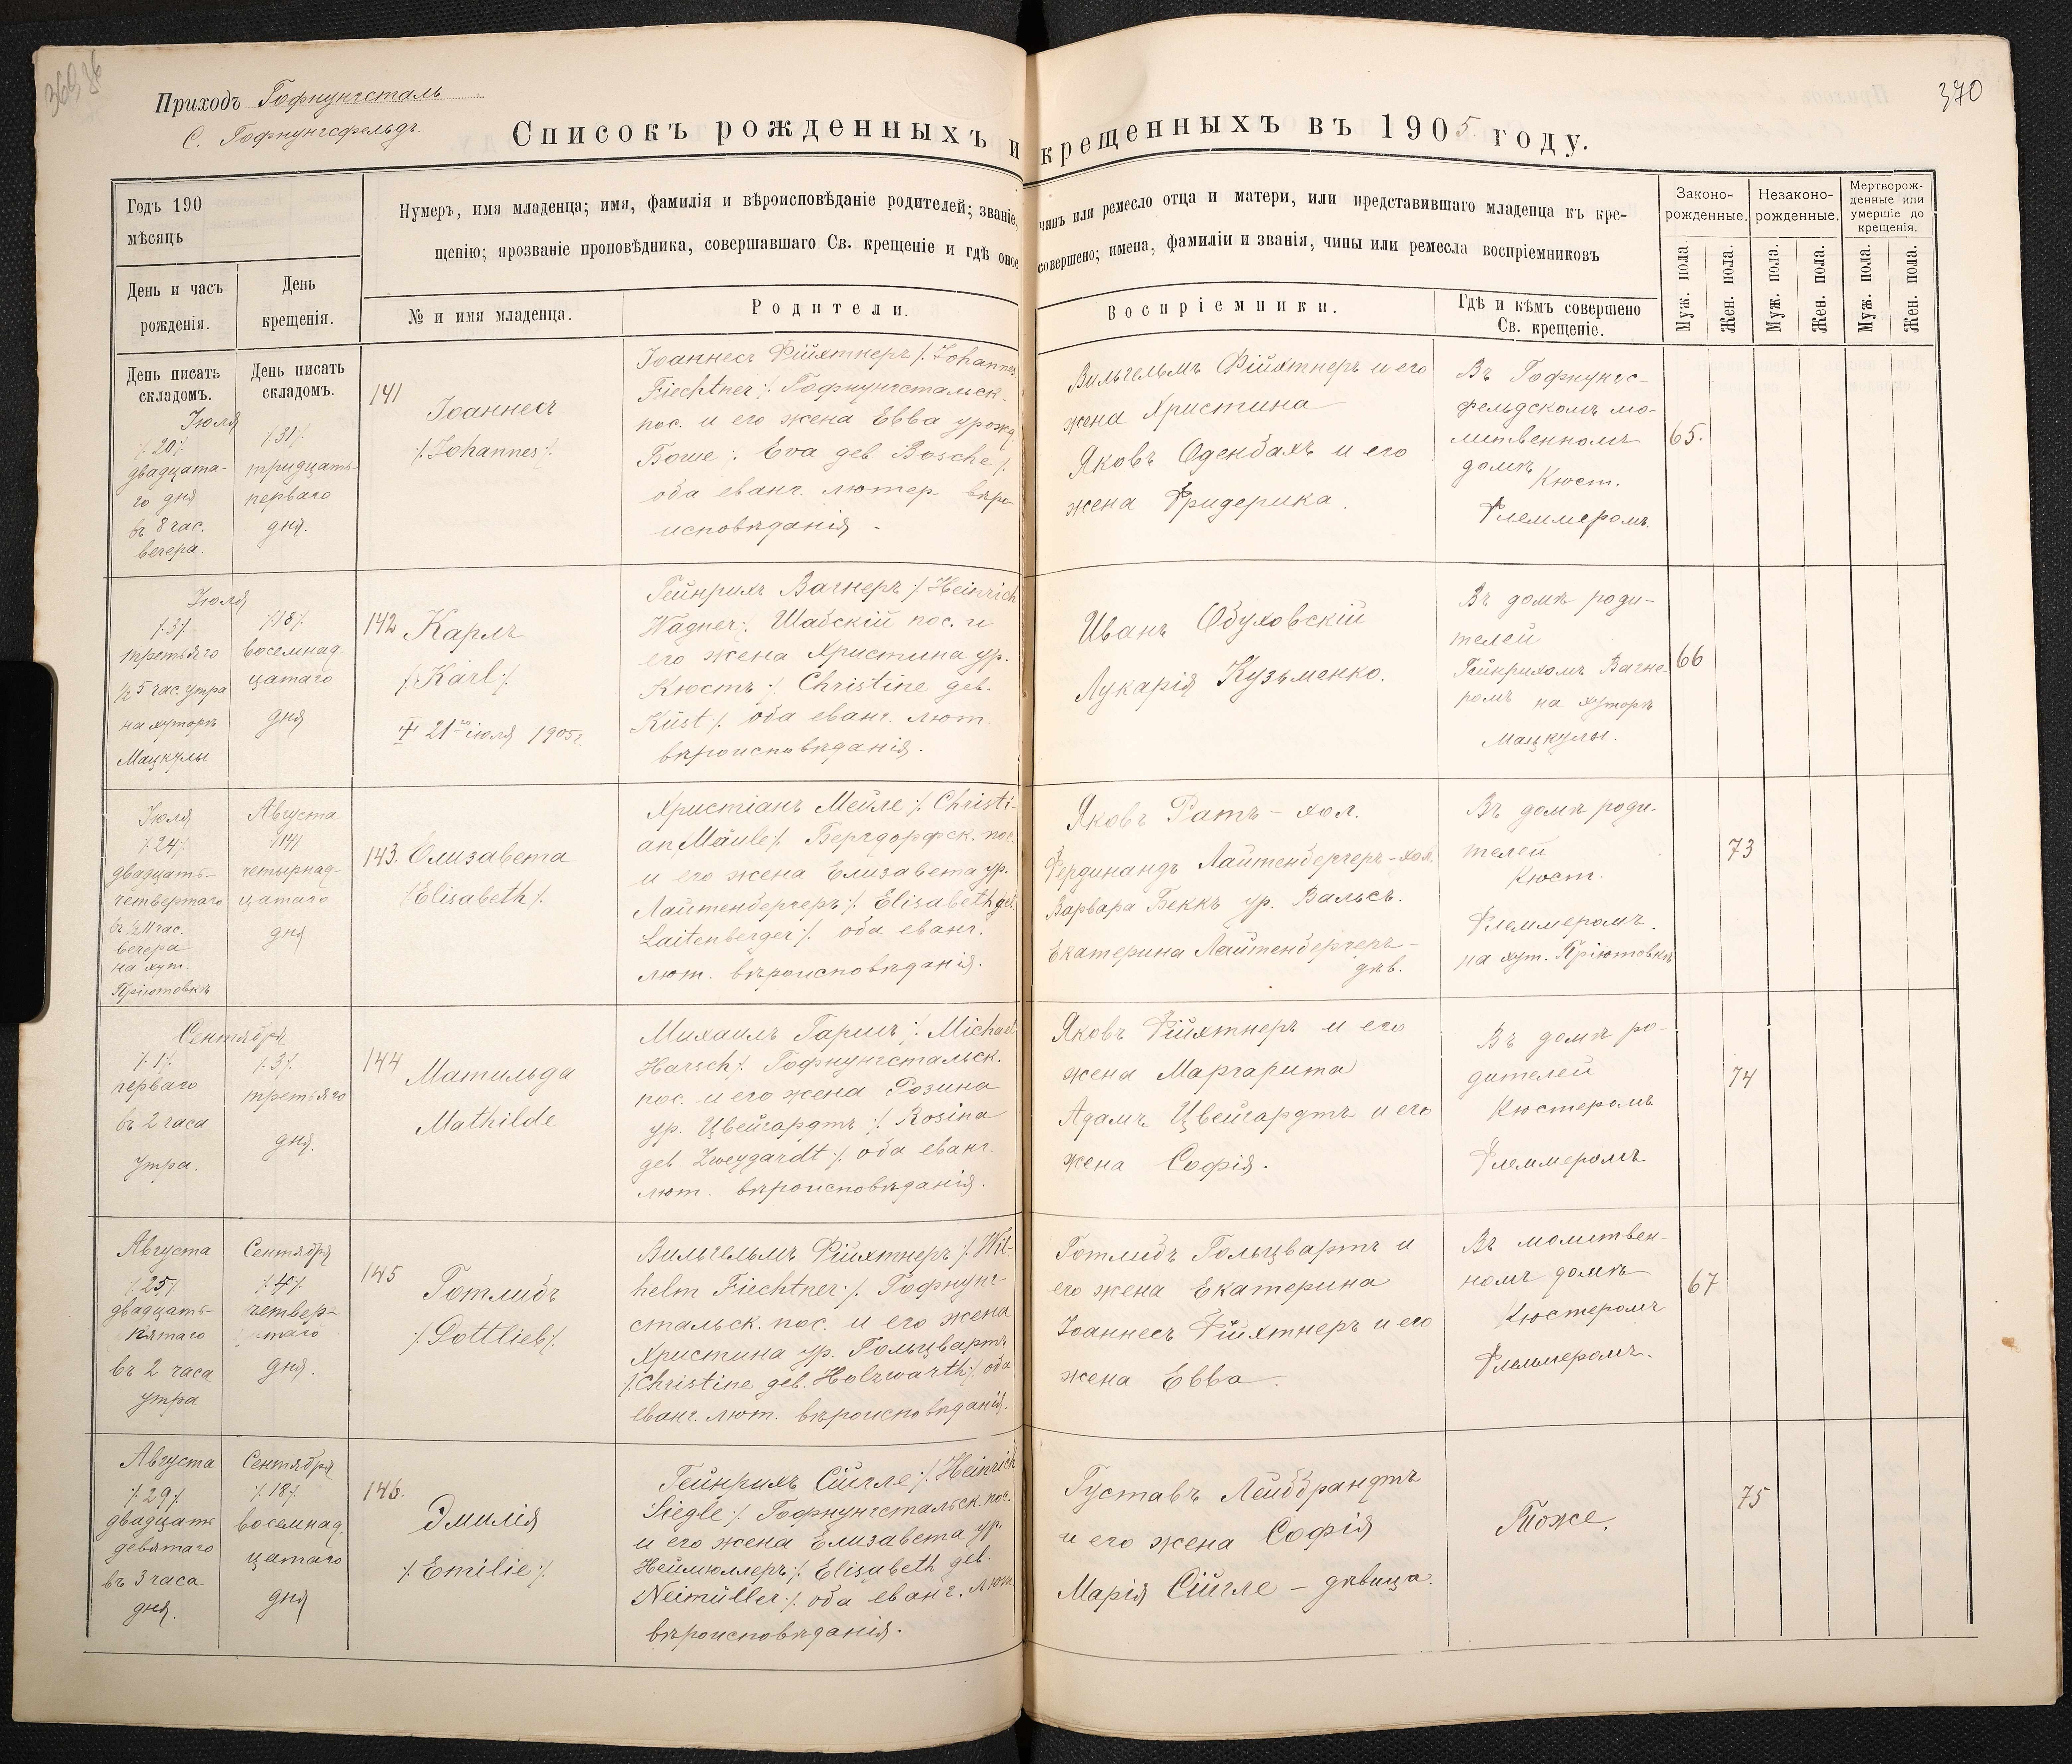 Приходъ Гофнунгсталь
С. Гофнунгсфельдъ.
370
Списокъ рожденныхъ и крещенныхъ въ 1905. году.
Годъ 190
мѣсяцъ
День и часъ
рожденія.
День
крещенія.
Нумеръ, имя младенца; имя, фамилія и вѣроисповѣданіе родителей; званіе, чинъ или ремесло отца и матери, или представившаго младенца къ кре-
щенію; прозваніе проповѣдника, совершавшаго Св. крещеніе и гдѣ оное совершено; имена, фамиліи и званія, чины или ремесла воспріемниковъ
№ и имя младенца.
Родители.
Воспріемники.
Гдѣ и кѣмъ совершено
Св. крещеніе.
Законо-
рожденные.
Незаконо-
рожденные.
Мертворож-
денные или
умершіе до
крещенія.
Муж. пола.
Жен. пола.
Муж. пола.
Жен. пола.
Муж. пола.
Жен. пола.
День писать
складомъ.
День писать
складомъ.
Іюля
/.20/.
двадцата-
го дня
въ 8 час.
вечера.
/.31/.
тридцать
перваго
дня.
141
Іоаннесъ
/.Johannes/.
Іоаннесъ Фійхтнеръ /.Johannes
Fiechtner/. Гофнунгстальск.
пос. и его жена Евва урожд.
Боше :. Eva geb. Bosche /.
оба еванг. лютер. вѣро
исповѣданія.
Вильгельмъ Фійхтнеръ и его
жена Христина
Яковъ Оденбахъ и его
жена Фридерика.
Въ Гофнунгс-
фельдскомъ мо-
литвенномъ
домѣ
Кюст.
Флеммеромъ.
65.
Іюля
/.3/.
третьяго
½ 5 час. утра
на хуторѣ
Мацкулы
/.18/.
восемнад-
цатаго
дня
142
Карлъ
/.Karl/.
† 21го іюля 1905 г.
Гейнрихъ Вагнеръ /.Heinrich
Wagner:. Шабскій пос. и
его жена Христина ур.
Кюстъ /. Christine geb.
Küst/. оба еванг. лют.
вѣроисповѣданія.
Иванъ Обуховскій
Лукарія Кузьменко.
Въ домѣ роди-
телей
Гейнрихомъ Вагне-
ромъ на хуторѣ
Мацкулы.
66
Іюля
/.24/.
двадцать-
четвертаго
въ ½11 час.
вечера
на хут.
Пріютовкѣ
Августа
/14/
четырнад-
цатаго
дня
143.
Елизавета
/.Elisabeth/.
Христіанъ Мейле /.Christi-
an Mäule/. Бергдорфск. пос.
и его жена Елизавета ур.
Лайтенбергеръ/. Elisabeth geb.
Laitenberger/. оба еванг.
лют. вѣроисповѣданія.
Яковъ Ратъ - хол.
Фердинандъ Лайтенбергеръ - хол.
Варвара Беккъ ур. Вальсъ.
Екатерина Лайтенбергеръ -
дѣв.
Въ домѣ роди-
телей
Кюст.
Флеммеромъ.
на хут. Пріютовкѣ
73
Сентября
/.1/.
перваго
въ 2 часа
утра.
/.3/.
третьяго
дня.
144
Матильда
Mathilde
Михаилъ Гаршъ /. Michael
Harsch/. Гофнунгстальск.
пос. и его жена Розина
ур. Цвейгардтъ /. Rosina
geb. Zweygardt/. оба еванг.
лют. вѣроисповѣданія.
Яковъ Фійхтнеръ и его
жена Маргарита
Адамъ Цвейгардтъ и его
жена Софія.
Въ домѣ ро-
дителей
Кюстеромъ
Флеммеромъ
74
Августа
/.25/.
двадцать-
пятаго
въ 2 часа
утра
Сентября
/.4/.
четвер-
таго
дня.
145
Готлибъ
/.Gottlieb/.
Вильгельмъ Фійхтнеръ /.Wil-
helm Fiechtner/. Гофнунг-
стальск. пос. и его жена
Христина ур. Гольцвартъ
/.Christine geb. Holzwarth/. оба
еванг. лют. вѣроисповѣданія.
Готлибъ Гольцвартъ и
его жена Екатерина
Іоаннесъ Фійхтнеръ и его
жена Евва.
Въ молитвен-
номъ домѣ
Кюстеромъ
Флеммеромъ.
67
Августа
/.29/.
двадцать
девятаго
въ 3 часа
дня.
Сентября
/.18/.
восемнад-
цатаго
дня
146.
Эмилія
/.Emilie/.
Гейнрихъ Сійгле /.Heinrich
Siegle/. Гофнунгстальск. пос.
и его жена Елизавета ур.
Неймюллеръ/. Elisabeth geb.
Neimüller/. оба еванг. лют.
вѣроисповѣданія.
Густавъ Лейббрандтъ
и его жена Софія
Марія Сійгле - дѣвица.
Тоже.
75